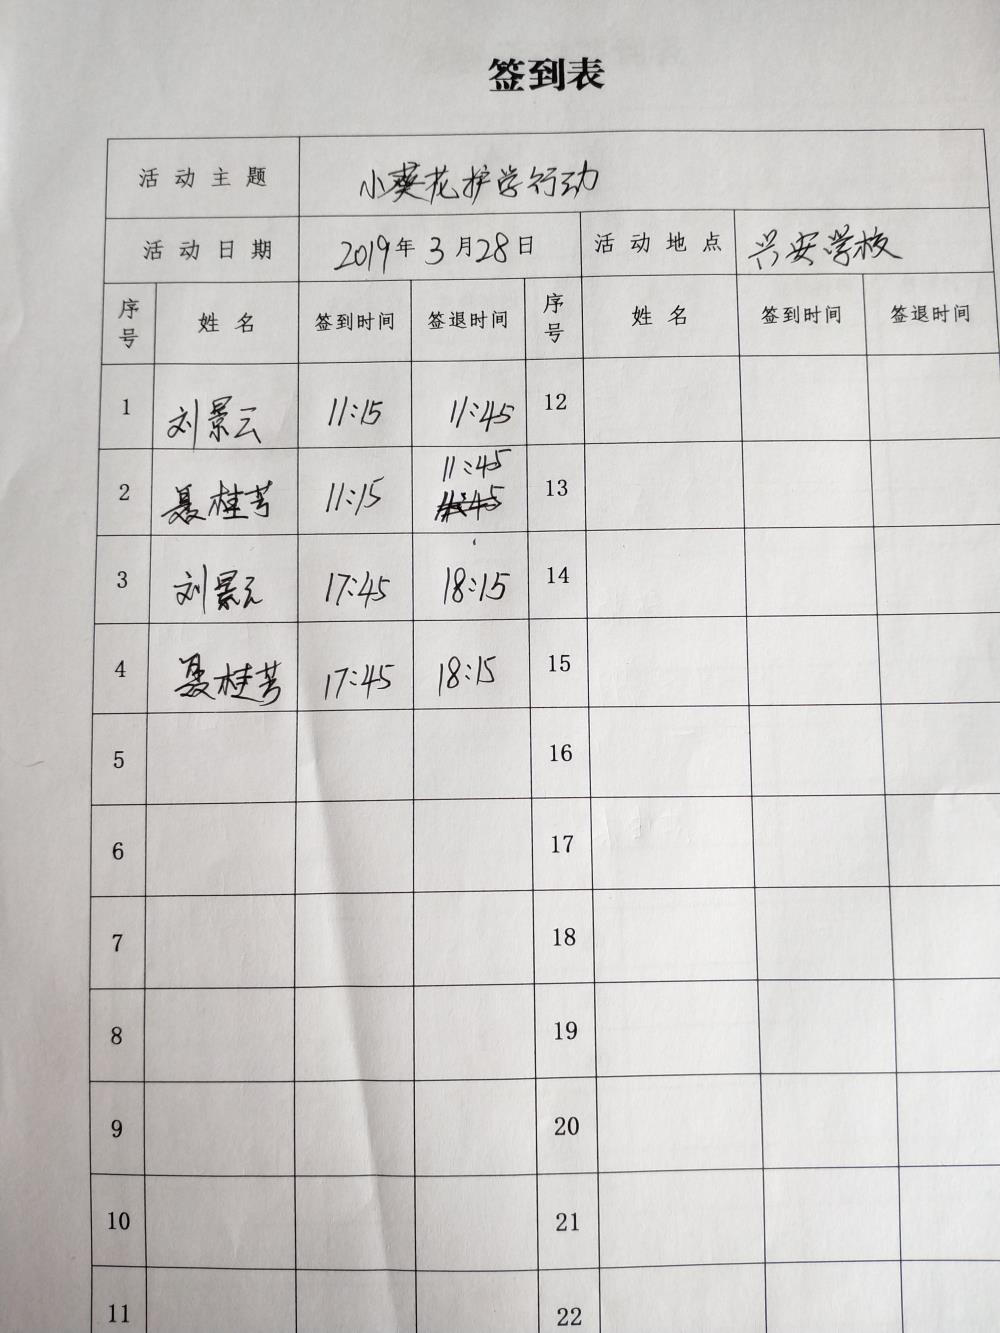 签到表
活动主题 小葵花护学行动
活动日期 2019年3月28日 活动地点 兴安学校
序号 姓名 签到时间 签退时间 序号 姓名 签到时间 签退时间
1 刘景云 11:15 11:45 12
11:45
2 聂桂芳 11:15 13
3 刘景云 17:45 18:15 14
4 聂桂芳 17:45 18:15 15
5 16
6 17
7 18
8 19
9 20
10 21
11 22